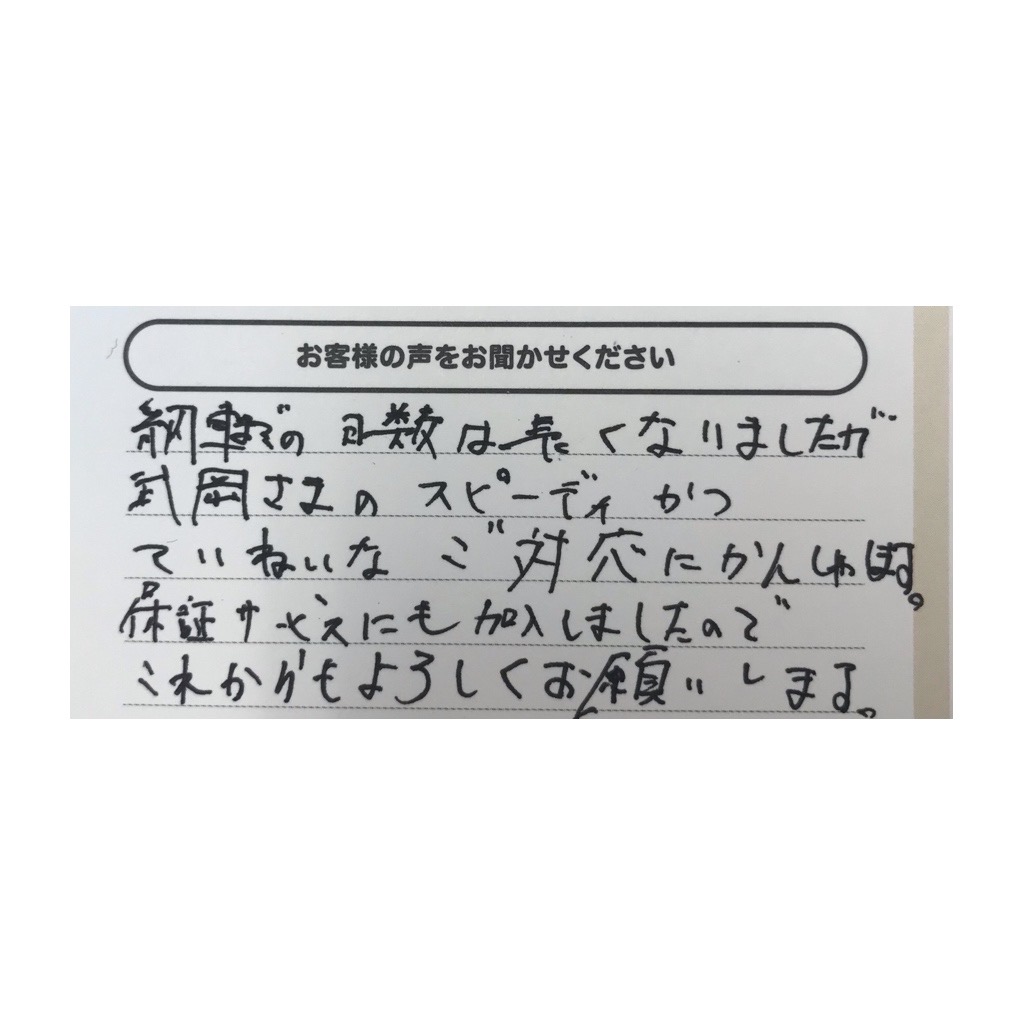 お客様の声をお聞かせください
納車までの日数は長くなりましたが
武岡さまのスピーディかつ
ていねいなご対応にかんしゃします。
保証サービスにも加入しましたので
これからもよろしくお願いします。